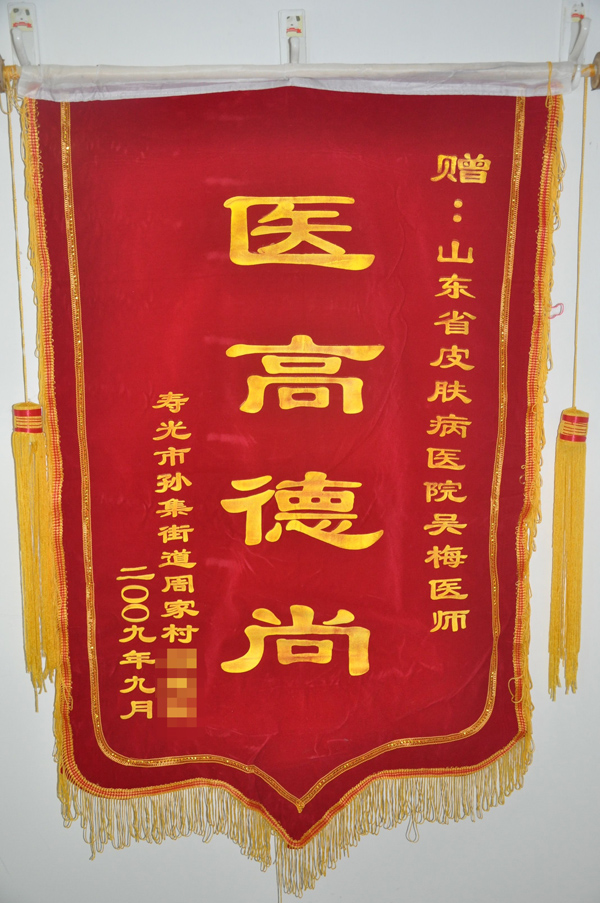 赠：山东省皮肤病医院吴梅医师
医高德尚
寿光市孙集街道周家村
二〇〇九年九月